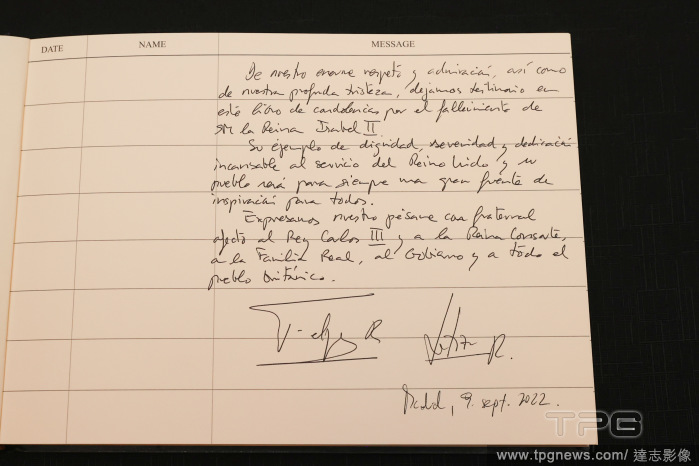 DATE NAME MESSAGE
De nuestro enorme respeto y admiración, así como
de nuestra profunda tristeza, dejamos testimonio en
este libro de condolencias por el fallecimiento de
SM la Reina Isabel II.
Su ejemplo de dignidad, severidad y dedicación
incansable al servicio del Reino Unido y su
pueblo será para siempre una gran fuente de
inspiración para todos.
Expresamos nuestro pésame con fraternal
afecto al Rey Carlos III y a la Reina Consorte,
a la Familia Real, al Gobierno y a todo el
pueblo británico.
Felipe R Letizia R.
Madrid, 9. sept. 2022.
TPG
www.tpgnews.com/ 達志影像